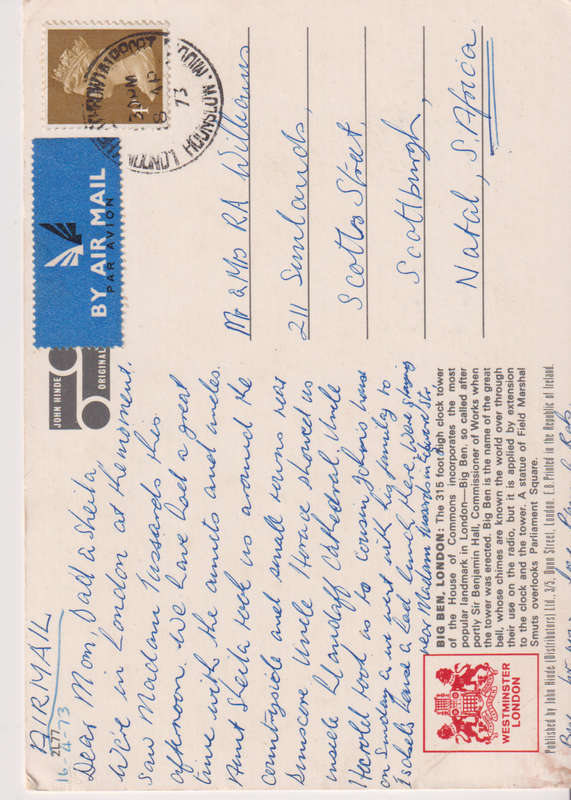 AIRMAIL
2L77
16-4-73
Dear Mom, Dad & Sheila
We're in London at the moment.
Saw Madam Tussards this
afternoon. We have had a great
time with the aunts and uncles.
Aunt Leila took us around the
countryside and small towns near
Uncle Horace showed us
inside Llandaff Cathedral. Uncle
Harold took us to cousin John's house
on Sunday & we went with his family to
Isobel's home & had lunch there. Were staying
near Madam Tussards in
JOHN HINDE
ORIGINAL
BY AIR MAIL
PAR AVION
HOUNSLOW
LONDON
73
Mr & Mrs RA Williams
211 Sunlands,
Scotts Street,
Scottburgh,
Natal, S. Africa
WESTMINSTER
LONDON
BIG BEN, LONDON: The 315 foot high clock tower
of the House of Commons incorporates the most
popular landmark in London—Big Ben, so called after
portly Sir Benjamin Hall, Commissioner of Works when
the tower was erected. Big Ben is the name of the great
bell, whose chimes are known the world over through
their use on the radio, but it is applied by extension
to the clock and the tower. A statue of Field Marshal
Smuts overlooks Parliament Square.
Published by John Hinde (Distributors) Ltd., 3/5, Dunn Street, London, E.8. Printed in the Republic of Ireland.